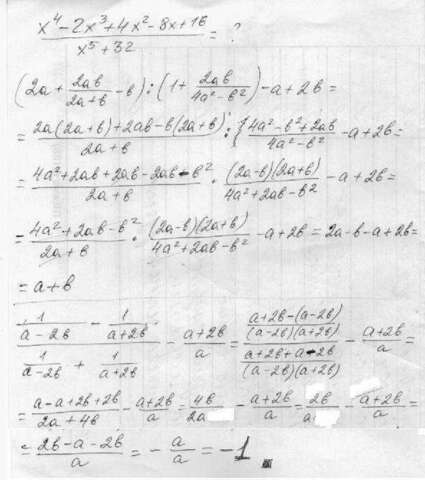 (x⁴-2x³+4x²-8x+16)/(x⁵+32) = ?
(2a + 2ab/(2a+b) - b) : (1 + 2ab/(4a²-b²)) - a + 2b =
= (2a(2a+b)+2ab-b(2a+b))/(2a+b) : (4a²-b²+2ab)/(4a²-b²) - a + 2b =
= (4a²+2ab+2ab-2ab-b²)/(2a+b) · ((2a-b)(2a+b))/(4a²+2ab-b²) - a + 2b =
= (4a²+2ab-b²)/(2a+b) · ((2a-b)(2a+b))/(4a²+2ab-b²) - a + 2b = 2a-b-a+2b =
= a+b
(1/(a-2b) - 1/(a+2b))/(1/(a-2b) + 1/(a+2b)) - (a+2b)/a = ((a+2b-(a-2b))/((a-2b)(a+2b)))/((a+2b+a-2b)/((a-2b)(a+2b))) - (a+2b)/a =
= (a-a+2b+2b)/(2a+4b) - (a+2b)/a = 4b/2a - (a+2b)/a = 2b/a - (a+2b)/a =
= (2b-a-2b)/a = -a/a = -1